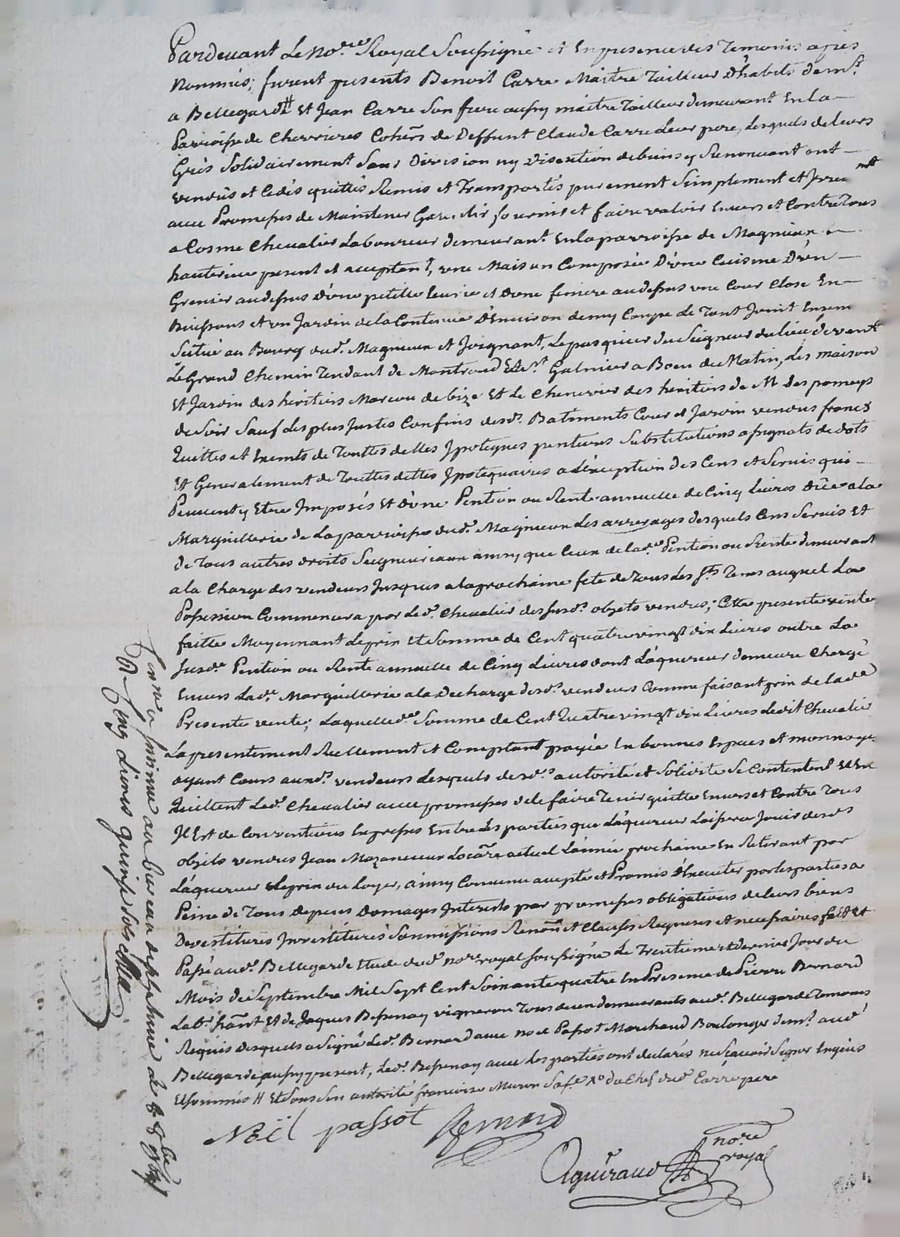 Pardevant Le No.re Royal Soussigné et En presence des Temoins apres
Nommés; furent presents Benoit Carre Maitre Tailleur D'habits dem.t
a Bellegarde H Et Jean Carre Son frere aussy maitre Tailleur demeurant En la
Parroisse de Chevrieres Coherts de Deffunt Claude Carre Leur pere, Lesquels de leurs
Grés Solidairement Sans Division ny Discution de biens y Renonceant ont
vendus et Cedés quittés Remis et Transportés purement Simplement et Irrev.mt
avec Promesses de Maintenir Garentir fournir et faire valoir Envers et Contre Tous
a Cosme Chevalier Laboureur demeurant En la parroisse de Magnieux
hauterive present et acceptant, une Maison Composée D'une Cuisine D'un
Grenier au dessus D'une petitte Ecurie et D'une feniere au dessus une Cour Close En
Buissons et un Jardin de la Contenue D'Environ demy Coupe Le Tout Joint Ensem
Scitué au Bourg dud. Magnieux et Joignant, Le pasquier du Seigneur du lieu de vent
Le Grand Chemin Tendant de Montrond Et de St Galmier a Boen de Matin, Les maison
Et Jardin des heritiers Marcou de bize Et Le Chenevier des heritiers de M. Des pomeys
de Soir Sauf Les plus Justes Confins desd. Batiments Cour et Jardin vendus francs
Quittes et Exemts de Touttes dettes Ipoteques pentions Substitutions assignats de dots
Et Generalement de Touttes dettes Ipotequaires a L'exception des Cens et Servis qui
Peuvent y Etre Imposés Et D'une Pention ou Rente annuelle de Cinq Livres Düe a la
Marguillerie de La parroisse dud. Magnieux Les arrerages desquels Cens Servis Et
de Tous autres droits Seigneuriaux ainsy que Ceux de lad. Pention ou Rente demeurant
a la Charge des vendeurs Jusques a la prochaine fete de Tous Les Sts Tems auquel La
Possession Commencera par Led. Chevalier des susd. objets vendus; Cette presente vente
faitte Moyennant Le prix Et Somme de Cent quatre vingt dix Livres outre La
Susd. Pention ou Rente annuelle de Cinq Livres dont L'aquereur demeure Chargé
Envers Lad. Marguillerie a la Decharge desd. vendeurs Comme faisant prix de lad.e
Presente vente; Laquelle d.e Somme de Cent Quatre vingt dix Livres Ledit Chevalier
La presentement Reellement et Comptant payée En bonnes Especes et monnoye
ayant Cours auxd. vendeurs Lesquels desd. autorité et Solidité Se Contentent Et En
Quittent Led. Chevalier avec promesses de le faire Tenir quitte Envers et Contre Tous
Il Est de Conventions Expresses Entre Les parties que L'aquereur Laissera Jouir desd.s
objets vendus Jean Mazeneux Loc.re actuel L'année prochaine En Retirant par
L'aquereur Le prix du Loyer, ainsy Convenu accepté et Promis D'Executer par les parties a
Peine de Tous Depens Domages Interests par promesses obligations de leurs biens
Devestitures Investitures Soumissions Renon.s et Clauses Requises et necessaires fait et
Passé aud. Bellegarde Etude dud. no.re royal Soussigné Le Trentieme et dernier Jour du
Mois de Septembre Mil Sept Cent Soixante quatre En Presence de Pierre Bernard
Lab.r h.ant Et de Jaques Bessenay vigneron Tous deux demeurants aud. Bellegarde Temoins
Requis Desquels a Signé Led. Bernard avec noel Passot Marchand Boulanger dem.t aud.
Bellegarde aussy present, Led. Bessenay avec Les parties ont declarés ne Scavoir Signer Enquis
Et Sommés H Et Sous Son autorité francoise Muron Sa fe. no du Chef dud. Carre pere
Noël passot Bernard
Aguiraud no.re royal
Con.lé a Insinué au bureau de St galmier Le 8 8bre 1764
R. Cinq Livres quinze sols